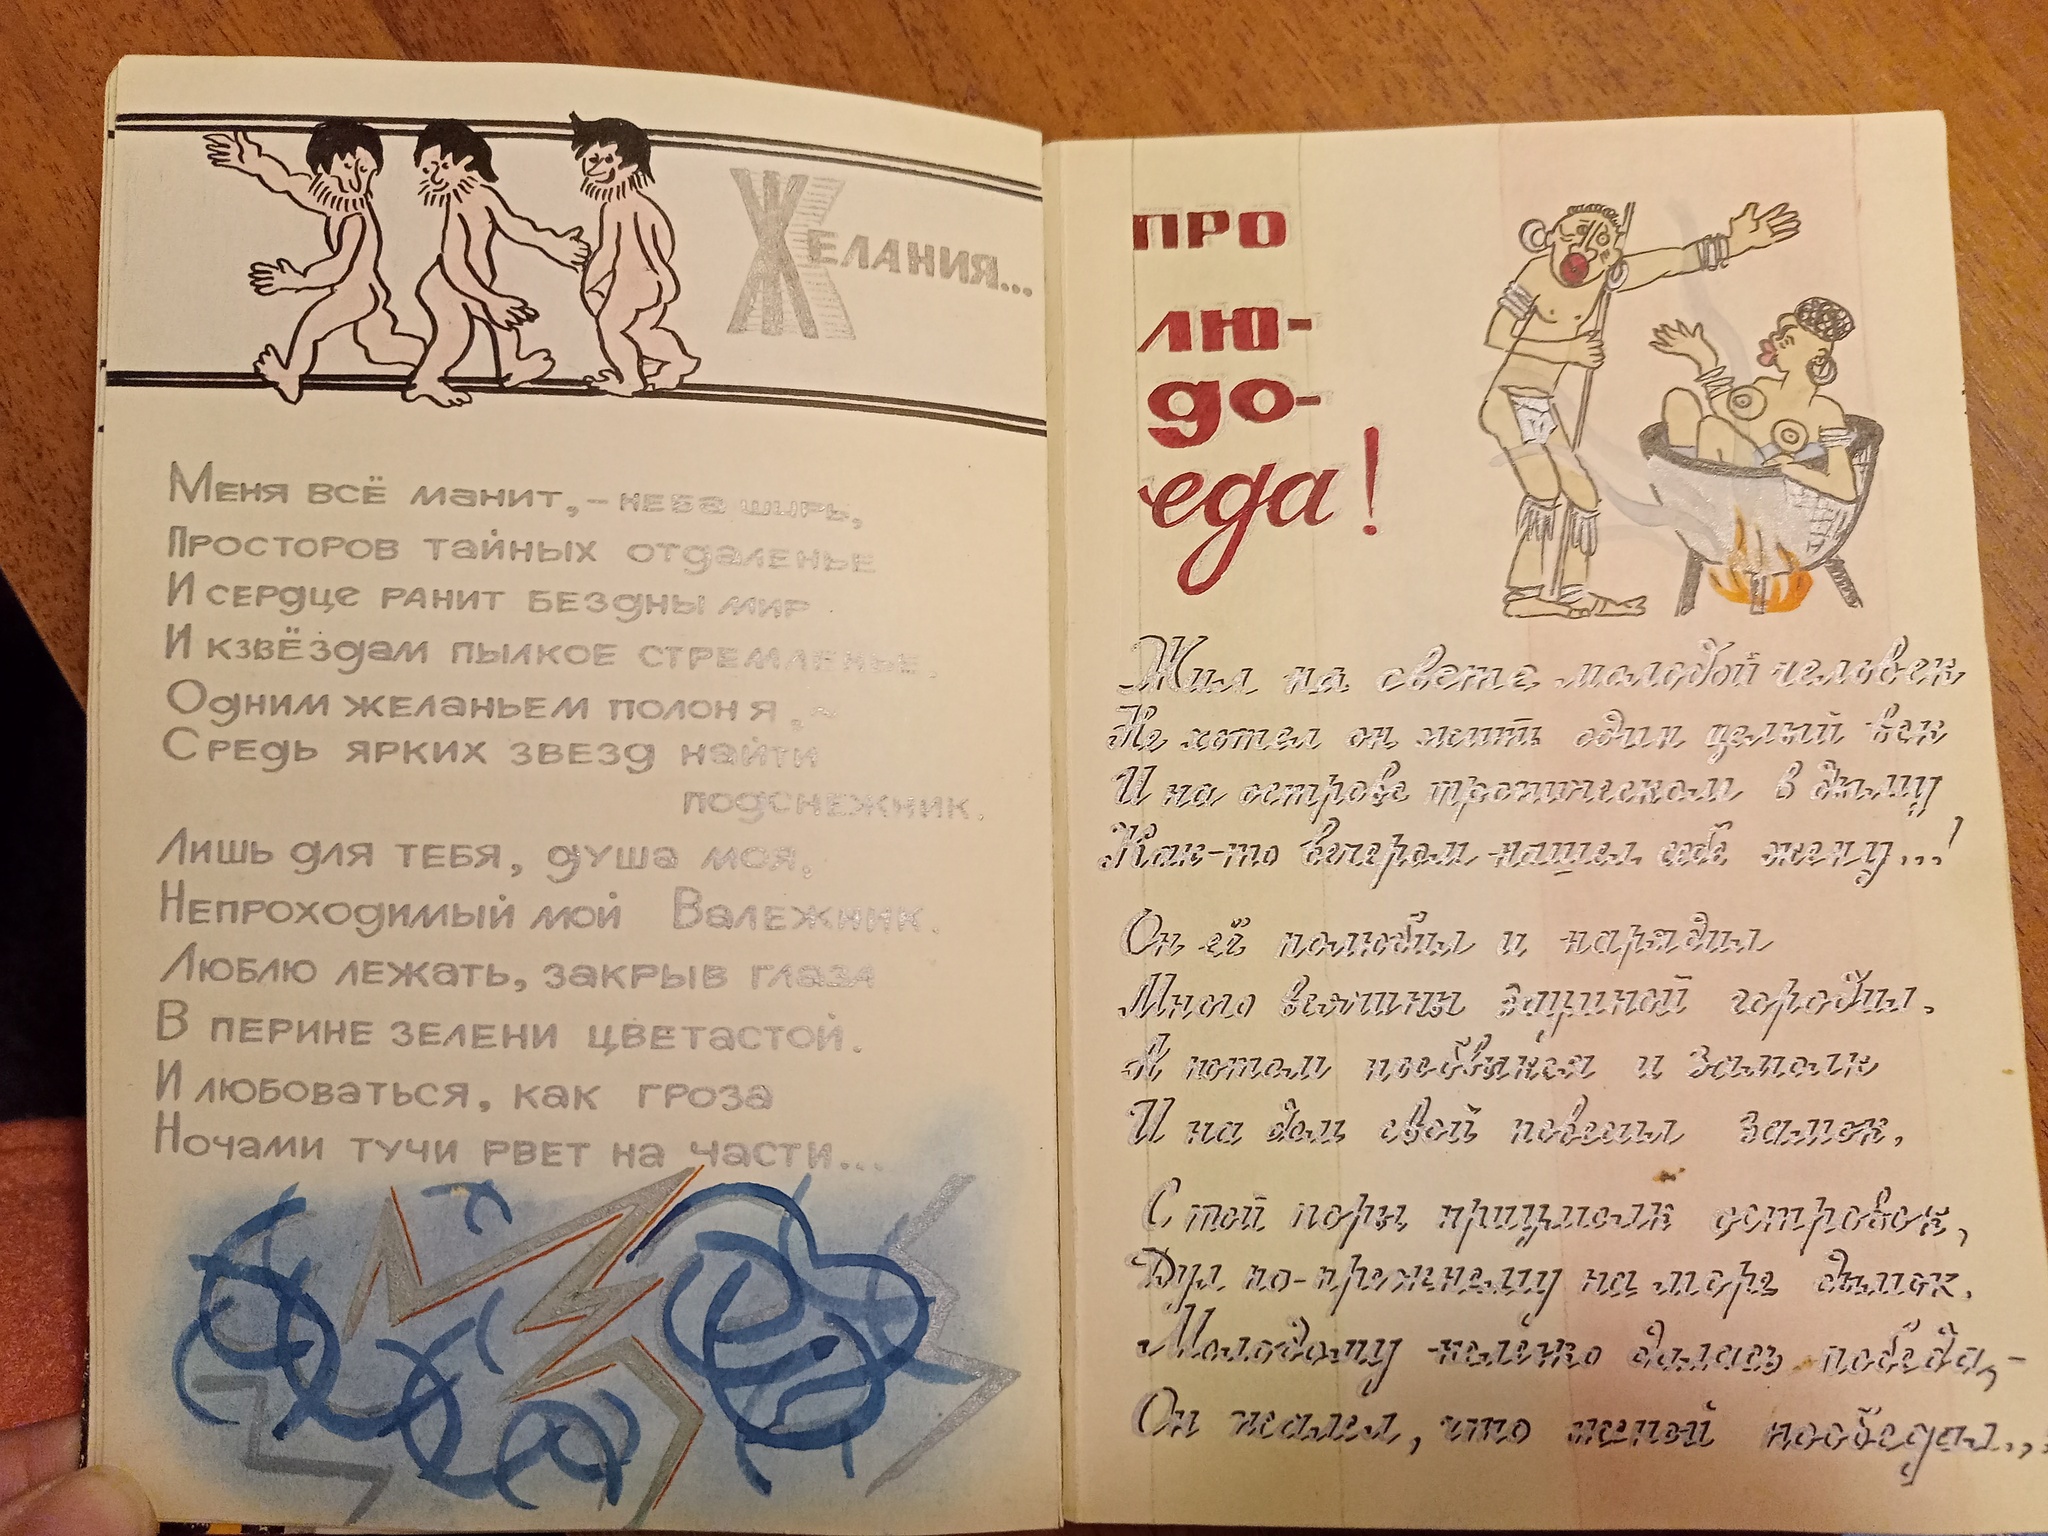 Желания...
Меня всё манит, - неба ширь,
Просторов тайных отдаленье
И сердце ранит бездны мир
И к звёздам пылкое стремленье.
Одним желаньем полон я, ~
Средь ярких звезд найти
подснежник.
Лишь для тебя, душа моя,
Непроходимый мой Валежник.
Люблю лежать, закрыв глаза
В перине зелени цветастой.
И любоваться, как гроза
Ночами тучи рвет на части...
ПРО
ЛЮ-
ДО-
еда!
Жил на свете молодой человек
Не хотел он жить один целый век
И на острове тропическом в дыму
Как-то вечером нашел себе жену...!
Он её полюбил и нарядил
Много ветчины городил.
А потом и замолк
И на дом свой повесил замок.
С той поры островок,
Дул по-прежнему на море дымок.
Молодому нелегко далась победа, -
Он жалел, что женой пообедал...